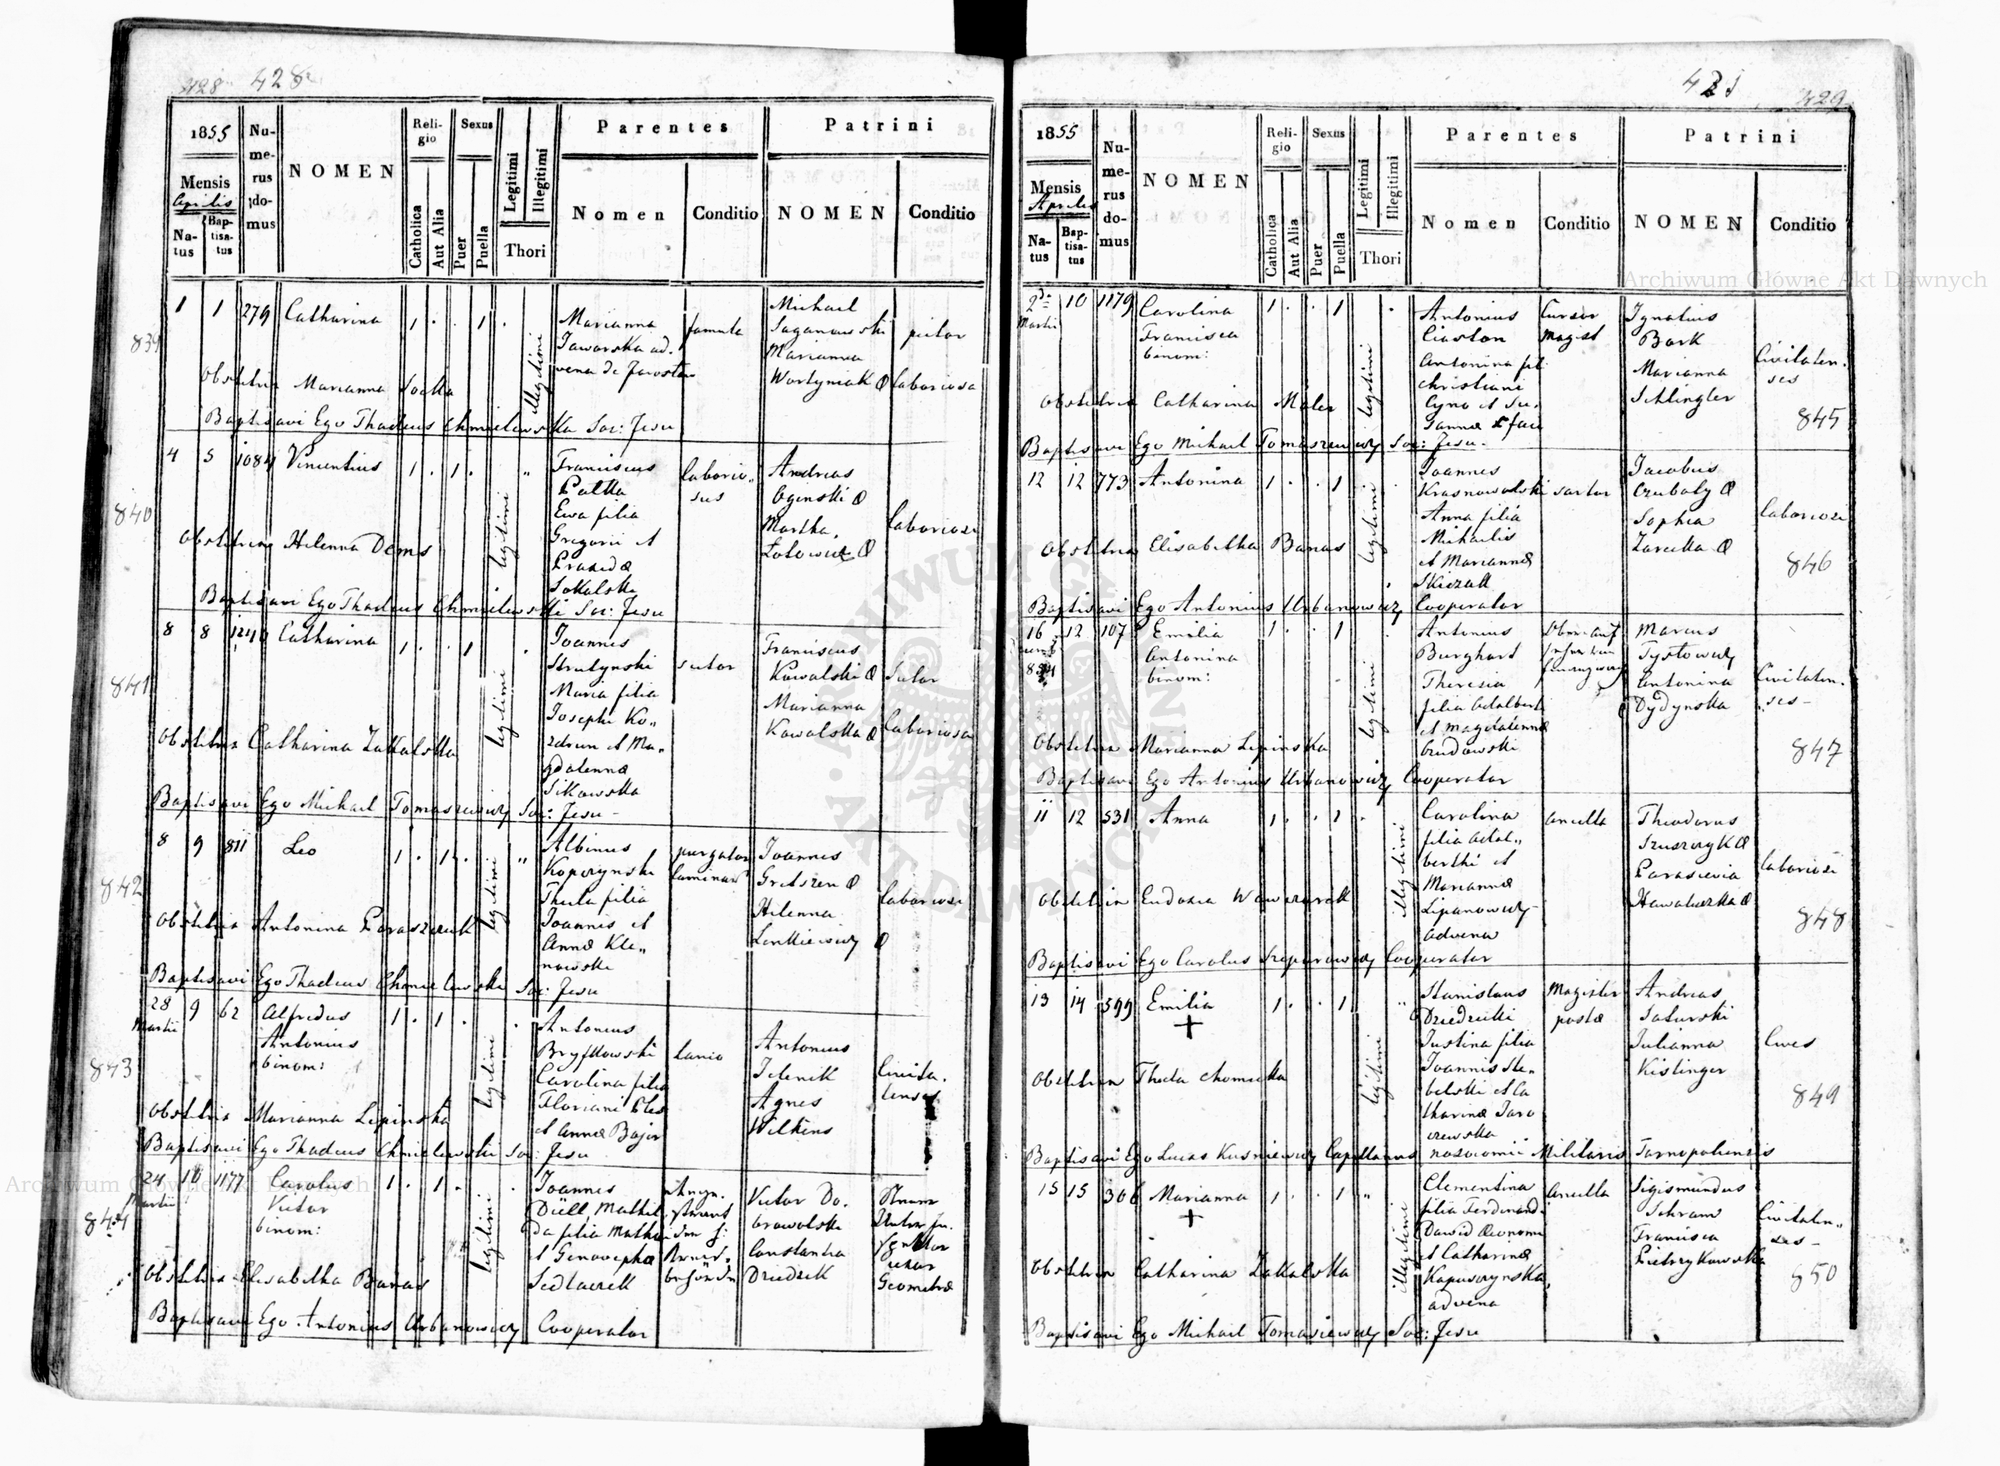 428
428
1855
Mensis
Aprilis
Natus
Baptisatus
Numerus domus
NOMEN
Religio
Catholica
Aut Alia
Sexus
Puer
Puella
Legitimi
Illegitimi
Thori
Parentes
Nomen
Conditio
Patrini
NOMEN
Conditio
839
1 1 279 Catharina 1 . . 1 . Illegitimi
Marianna
Jaworska ad-
vena de
famula
Michael
Saganowski
Marianna
Wortyniak
pictor
laboriosa
Obstetrix Marianna Socka
Baptisavi Ego Thadeus Chmielewski Soc: Jesu
840
4 5 1084 Vincentius 1 . 1 . legitimi "
Franciscus
Palka
Ewa filia
Gregorii et
Praxidæ
Sokalski
laborio-
sus
Andreas
Ogenski
Martha
laboriosi
Obstetrix Helenna Dems
Baptisavi Ego Thadeus Chmielewski Soc: Jesu
841
8 8 Catharina 1 . . 1 legitimi .
Joannes
Strutynski
Maria filia
Josephi Ko-
zdrun et Ma-
gdalennæ
Sikowska
sutor
Franciscus
Kowalski
Marianna
Kowalska
Sutor
laboriosa
Obstetrix Catharina Zakalska
Baptisavi Ego Michael Tomaszewicz Soc: Jesu -
842
8 9 811 Leo 1 . 1 . legitimi "
Albinus
Kopczynski
Thecla filia
Joannis et
Annæ Kle-
nowski
purgator
caminar
Joannes
Gretszen
Helenna
Lenkiewicz
laboriosi
Obstetrix Antonina Paraszczuk
Baptisavi Ego Thadeus Chmielewski Soc: Jesu
843
28 9 62 Alfredus 1 . 1 . legitimi .
Martii
Antonius
binom:
Antonius
Bryfkowski
Carolina filia
Floriani
et Annæ Bajer
lanio
Antonius
Jelenik
Agnes
Wilkens
Civita-
tenses
Obstetrix Marianna Lipinska
Baptisavi Ego Thadeus Chmielewski Soc: Jesu
844
24 10 1177 Carolus 1 . 1 . legitimi .
Martii
Victor
binom:
Joannes
Düll Mathil-
da filia Mathæ
et Genovephæ
Sedlaczek
Victor Do-
browolski
Constantia
Dziedzik
Geometræ
Obstetrix Elisabetha Banas
Baptisavi Ego Antonius Urbanowicz Cooperator
429
1855
Mensis
Aprilis
Natus
Baptisatus
Numerus domus
NOMEN
Religio
Catholica
Aut Alia
Sexus
Puer
Puella
Legitimi
Illegitimi
Thori
Parentes
Nomen
Conditio
Patrini
NOMEN
Conditio
10 1179 Carolina 1 . . 1 legitimi .
Martii
Francisca
binom:
Antonius
Ciaston
Antonina fil
Christiani
Cyna et Su-
sannæ
Cursor
Magist
Ignatius
Bark
Marianna
Schlingler
Civitaten-
ses
845
Obstetrix Catharina Maler
Baptisavi Ego Michael Tomaszewicz Soc: Jesu -
12 12 773 Antonina 1 . . 1 legitimi .
Joannes
Krasnowolski
Anna filia
Michaelis
et Mariannæ
Skiczak
sartor
Jacobus
Czubaty
Sophia
Zarecka
laboriosi
846
Obstetrix Elisabetha Banas
Baptisavi Ego Antonius Urbanowicz Cooperator
16 12 107 Emilia 1 . . 1 legitimi .
Antonina
binom:
Antonius
Burghart
Theresia
filia Adalberti
et Magdalennæ
Grudowski
Marcus
Tystowicz
Antonina
Dydynska
Civitaten-
ses -
847
Obstetrix Marianna Lipinska
Baptisavi Ego Antonius Urbanowicz Cooperator
11 12 531 Anna 1 . . 1 . illegitimi
Carolina
filia Adal-
berthi et
Mariannæ
Lipanowicz
advena
ancilla
Theodorus
Szuszczyk
Parascevia
Hawaluszka
laboriosi
848
Obstetrix Eudoxia Wawrzaszek
Baptisavi Ego Carolus Szpurowicz Cooperator
13 14 599 Emilia 1 . . 1 legitimi "
Stanislaus
Dziedzicki
Justina filia
Joannis Ste-
belski et Ca
tharinæ Jaro
czewska
Magister
postæ
Andreas
Saturski
Julianna
Kistinger
Cives
849
Obstetrix Thecla Chomicka
Baptisavi Ego Lucas Kusniewicz Capellanus nosocomii Militaris Tarnopoliensis
15 15 306 Marianna 1 . . 1 " illegitimi
Clementina
filia Ferdinand-
Dawid Oeconomi
et Catharinæ
Kapuszynska,
advena
ancilla
Sigismundus
Schram
Francisca
Pietrzykowska
Civitaten-
ses -
850
Obstetrix Catharina Zakalska
Baptisavi Ego Michael Tomasiewicz Soc: Jesu
Archiwum Główne Akt Dawnych
Archiwum Główne Akt Dawnych
ARCHIWUM GŁÓWNE AKT DAWNYCH